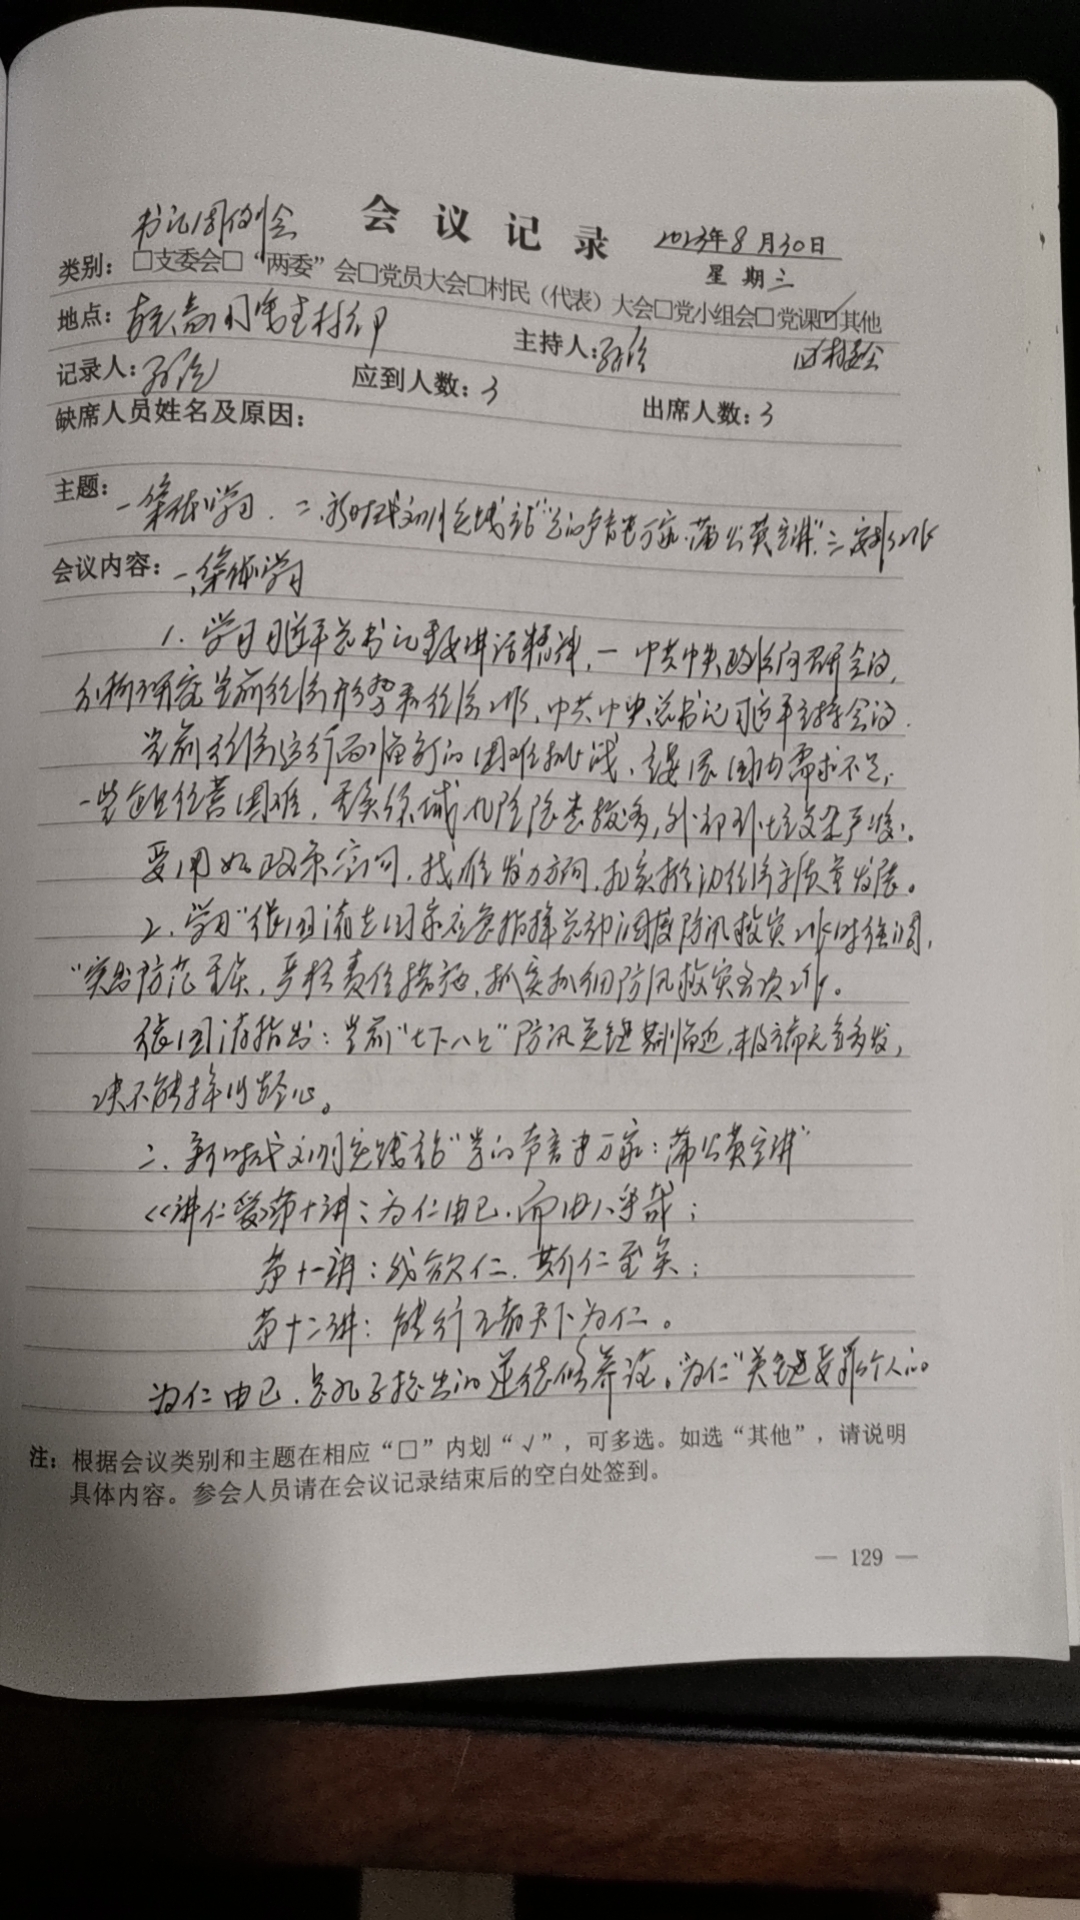 会议记录
书记周例会
2023年8月30日
星期三
类别：□支委会□“两委”会□党员大会□村民（代表）大会□党小组会□党课☑其他
地点：
主持人：
记录人：
应到人数：3
出席人数：3
缺席人员姓名及原因：
主题：一集体学习、二、新时代文明实践站“党的声音进万家·蒲公英宣讲”三安排工作
会议内容：一、集体学习
1、学习习近平总书记重要讲话精神，一中共中央政治局召开会议，
分析研究当前经济形势和经济工作，中共中央总书记习近平主持会议.
当前经济运行面临新的困难挑战，主要是国内需求不足，
一些企业经营困难，重点领域风险隐患较多，外部环境复杂严峻。
要用好政策空间，找准发力方向，扎实推动经济高质量发展。
2、学习“张国清在国家应急指挥总部调度防汛救灾工作时强调，
“突出防范重点，严格责任措施，抓实抓细防汛救灾各项工作。
张国清指出：当前“七下八上”防汛关键期临近，极端天气多发，
决不能掉以轻心。
二、新时代文明实践站“党的声音进万家：蒲公英宣讲”
《讲仁爱》第十讲：为仁由己，而由人乎哉；
第十一讲：我欲仁，斯仁至矣；
第十二讲：能行五者天下为仁。
为仁由己，是孔子提出的道德修养论。“为仁”关键要靠个人的
注：根据会议类别和主题在相应“□”内划“√”，可多选。如选“其他”，请说明
具体内容。参会人员请在会议记录结束后的空白处签到。
— 129 —